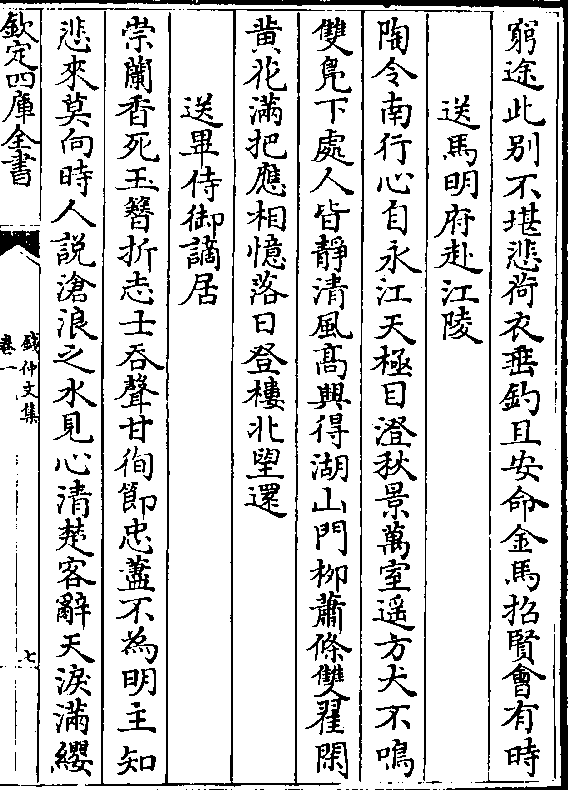 窮途此别不堪悲荷衣垂釣且安命金馬招賢會有時
送馬明府赴江陵
陶令南行心自永江天極目澄秋景萬室遥方犬不鳴
雙鳬下處人皆靜清風髙興得湖山門柳蕭條雙翟閑
黄花滿把應相憶落日登樓北望還
送畢侍御謫居
崇蘭香死玉簪折志士吞聲甘徇節忠藎不為明主知
悲來莫向時人說滄浪之水見心清楚客辭天淚滿纓
欽定四庫全書
錢仲文集
卷一
七